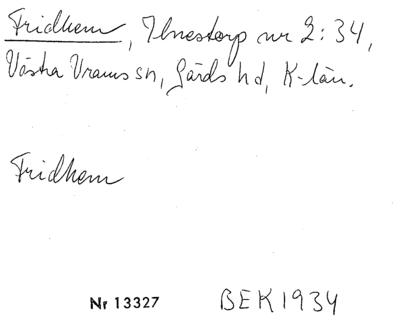 Fridhem, Ilnestorp nr 2:34,
Västra Vrams sn, Gärds hd, K-län.
Fridhem
Nr 13327 BEK1934